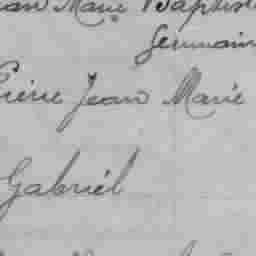 Jean Marie Baptiste
Germain
Pierre Jean Marie
Gabriél